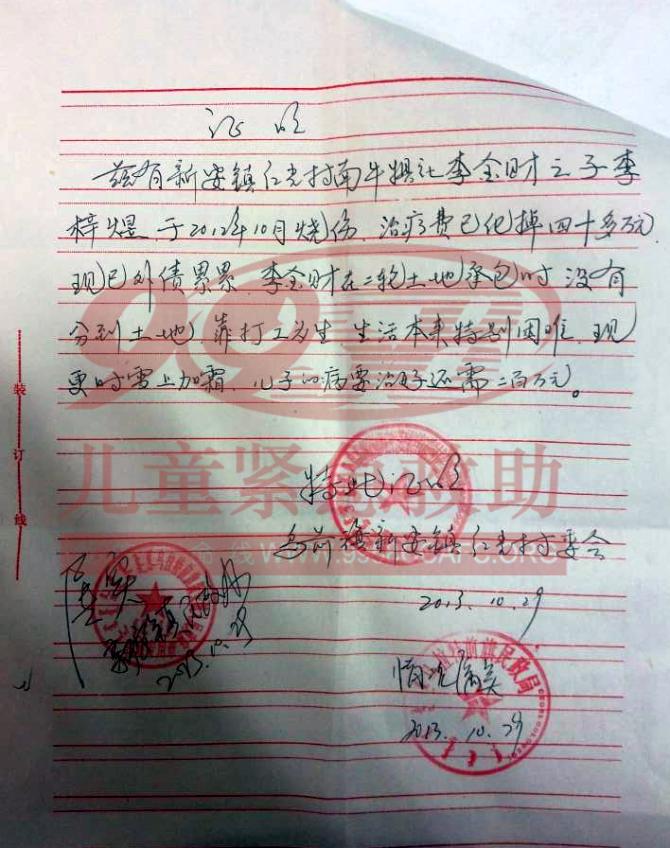 证明
兹有新安镇仁光村南牛犋社李全财之子李
梓煜于2012年10月烧伤,治疗费已花掉四十多万元,
现已外债累累,李全财在二轮土地承包时没有
分到土地,靠打工为生,生活本来特别困难,现
更时雪上加霜,儿子的病要治好还需二百万元。
特此证明
乌前旗新安镇仁光村委会
2013.10.29
属实
2013.10.29
情况属实
2013.10.29
前旗民政局
装订线
儿童紧急救助